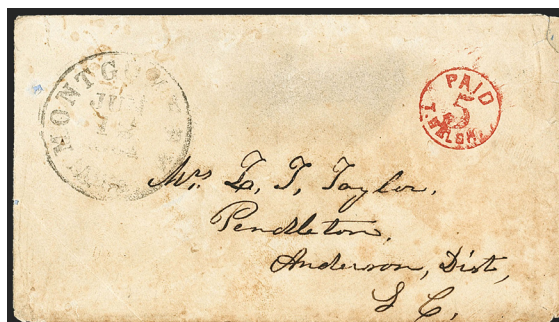 MONTGOMERY
PAID
5
T. WELSH
Mrs L. T. Taylor,
Pendleton,
Anderson, Dist,
S C.